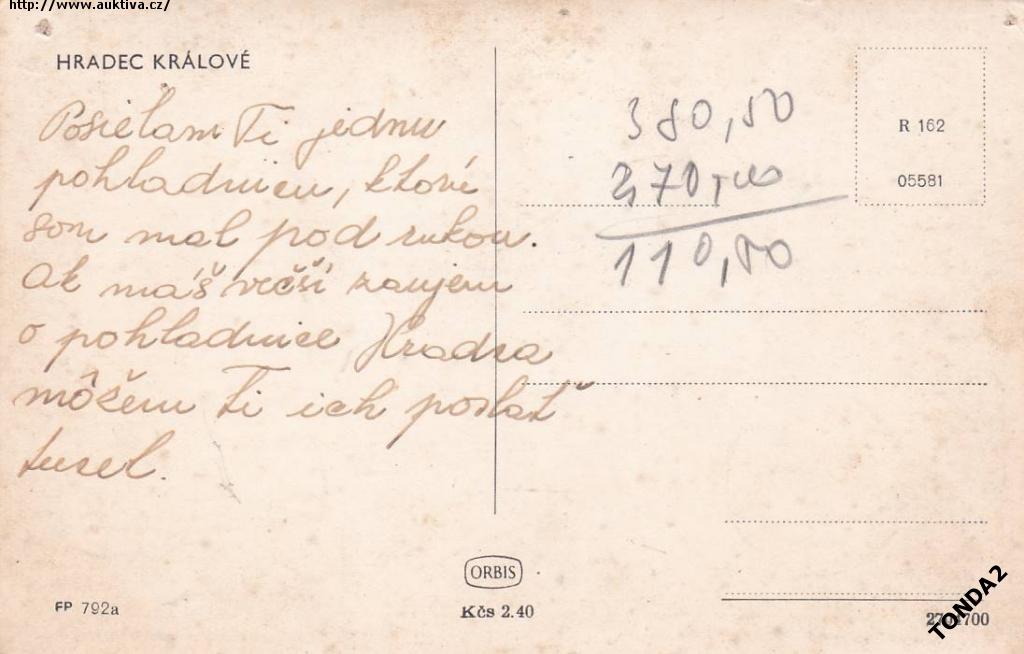 http://www.auktiva.cz/
HRADEC KRÁLOVÉ
Posielam Ti jednu
pohladnicu, ktorú
som mal pod rukou.
Ak máš večší zaujem
o pohladnice Hradca
môžem Ti ich poslať
tucel.
380,50
270,00
110,50
R 162
05581
ORBIS
FP 792a
Kčs 2.40
TONDA2